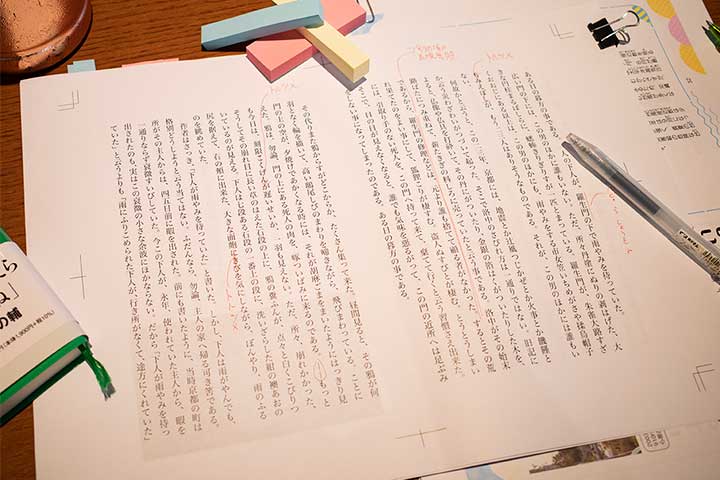 ある日の暮方の事である。一人の下人が、羅生門の下で雨やみを待っていた。
広い門の下には、この男のほかに誰もいない。ただ、所々丹塗にぬりの剥げた、大
きな円柱まるばしらに、蟋蟀きりぎりすが一匹とまっている。羅生門が、朱雀大路すざ
くおおじにある以上は、この男のほかにも、雨やみをする市女笠いちめがさや揉烏帽子
もみえぼしが、もう二三人はありそうなものである。それが、この男のほかには誰もい
ない。
何故かと云うと、この二三年、京都には、地震とか辻風つじかぜとか火事とか饑饉と
か云う災わざわいがつづいて起った。そこで洛中のさびれ方は一通りではない。旧記に
よると、仏像や仏具を打砕いて、その丹にがついたり、金銀の箔はくがついたりした木を、
路ばたにつみ重ねて、薪たきぎの料しろに売っていたと云う事である。洛中がその始末
であるから、羅生門の修理などは、元より誰も捨てて顧る者がなかった。するとその荒
れ果てたのをよい事にして、狐狸こりが棲む。盗人ぬすびとが棲む。とうとうしまい
には、引取り手のない死人を、この門へ持って来て、棄てて行くと云う習慣さえ出来た。
そこで、日の目が見えなくなると、誰でも気味を悪るがって、この門の近所へは足ぶみ
をしない事になってしまったのである。ある日の暮方の事である。
その代りまた鴉からすがどこからか、たくさん集って来た。昼間見ると、その鴉が何
羽となく輪を描いて、高い鴟尾しびのまわりを啼きながら、飛びまわっている。ことに
門の上の空が、夕焼けであかくなる時には、それが胡麻ごまをまいたようにはっきり見
えた。鴉は、勿論、門の上にある死人の肉を、啄ついばみに来るのである。もっと
も今日は、刻限こくげんが遅いせいか、一羽も見えない。ただ、所々、崩れかかった、
そうしてその崩れ目に長い草のはえた石段の上に、鴉の糞ふんが、点々と白くこびりつ
いているのが見える。下人は七段ある石段の一番上の段に、洗いざらした紺の襖あおの
尻を据えて、右の頬に出来た、大きな面皰にきびを気にしながら、ぼんやり、雨のふる
のを眺めていた。
作者はさっき、「下人が雨やみを待っていた」と書いた。しかし、下人は雨がやんでも、
格別どうしようと云う当てはない。ふだんなら、勿論、主人の家へ帰る可き筈である。
所がその主人からは、四五日前に暇を出された。前にも書いたように、当時京都の町は
一通りならず衰微すいびしていた。今この下人が、永年、使われていた主人から、暇を
出されたのも、実はこの衰微の小さな余波にほかならない。だから「下人が雨やみを待っ
ていた」と云うよりも「雨にふりこめられた下人が、行き所がなくて、途方にくれていた」
トルツメ
トルツメ
なら
ね」
の輔